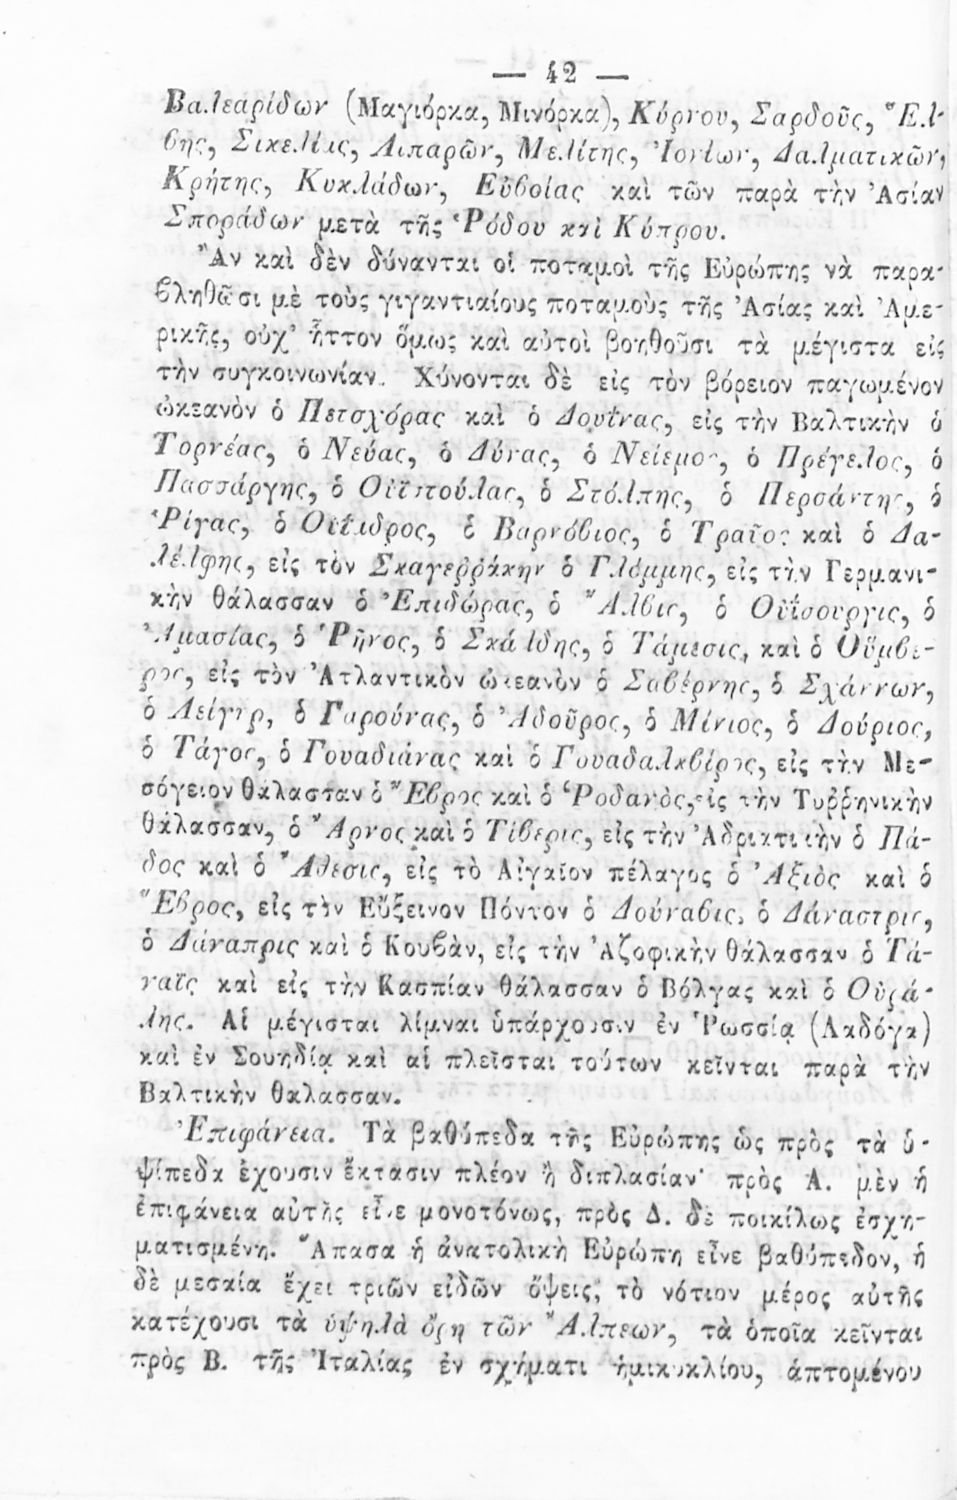 — 42 —
Βαλεαρίδων (Μαγιόρκα, Μινόρκα), Κύρνου, Σαρδοῦς, Ἔλ-
βης, Σικελίας, Λιπαρῶν, Μελίτης, Ἰονίων, Δαλματικῶν,
Κρήτης, Κυκλάδων, Εὐβοίας καὶ τῶν παρὰ τὴν Ἀσίαν
Σποράδων μετὰ τῆς Ῥόδου καὶ Κύπρου.
Ἂν καὶ δὲν δύνανται οἱ ποταμοὶ τῆς Εὐρώπης νὰ παρα-
βληθῶσι μὲ τοὺς γιγαντιαίους ποταμοὺς τῆς Ἀσίας καὶ Ἀμε-
ρικῆς, οὐχ’ ἧττον ὅμως καὶ αὐτοὶ βοηθοῦσι τὰ μέγιστα εἰς
τὴν συγκοινωνίαν. Χύνονται δὲ εἰς τὸν βόρειον παγωμένον
ὠκεανὸν ὁ Πετσχόρας καὶ ὁ Δουΐνας, εἰς τὴν Βαλτικὴν ὁ
Τορνέας, ὁ Νεύας, ὁ Δύνας, ὁ Νείεμος, ὁ Πρέγελος, ὁ
Πασσάργης, ὁ Οὐϊστούλας, ὁ Στόλπης, ὁ Περσάντης, ὁ
Ῥίγας, ὁ Οὐΐαδρος, ὁ Βαρνόβιος, ὁ Τραῖος καὶ ὁ Δα-
λέλφης, εἰς τὸν Σκαγερῥάκην ὁ Γλόμμης, εἰς τὴν Γερμανι-
κὴν θάλασσαν ὁ Ἐπιδώρας, ὁ Ἄλβις, ὁ Οὐΐσουργις, ὁ
Ἀμασίας, ὁ Ῥῆνος, ὁ Σκάλδης, ὁ Τάμεσις, καὶ ὁ Οὔμβε-
ρος, εἰς τὸν Ἀτλαντικὸν ὠκεανὸν ὁ Σαβέρνης, ὁ Σχάννων,
ὁ Λείγηρ, ὁ Γαρούνας, ὁ Ἀδοῦρος, ὁ Μίνιος, ὁ Δούριος,
ὁ Τάγος, ὁ Γουαδιάνας καὶ ὁ Γουαδαλκβίρος, εἰς τὴν Με-
σόγειον θάλασσαν ὁ Ἔβρος καὶ ὁ Ῥοδανὸς, εἰς τὴν Τυῤῥηνικὴν
θάλασσαν, ὁ Ἄρνος καὶ ὁ Τίβερις, εἰς τὴν Ἀδριατικὴν ὁ Πά-
δος καὶ ὁ Ἄθεσις, εἰς τὸ Αἰγαῖον πέλαγος ὁ Ἀξιὸς καὶ ὁ
Ἕβρος, εἰς τὸν Εὔξεινον Πόντον ὁ Δούναβις, ὁ Δάναστρις,
ὁ Δάναπρις καὶ ὁ Κουβὰν, εἰς τὴν Ἀζοφικὴν θάλασσαν ὁ Τά-
ναϊς καὶ εἰς τὴν Κασπίαν θάλασσαν ὁ Βόλγας καὶ ὁ Οὐρά-
λης. Αἱ μέγισται λίμναι ὑπάρχουσιν ἐν Ῥωσσίᾳ (Λαδόγα)
καὶ ἐν Σουηδίᾳ καὶ αἱ πλεῖσται τούτων κεῖνται παρὰ τὴν
Βαλτικὴν θάλασσαν.
Ἐπιφάνεια. Τὰ βαθύπεδα τῆς Εὐρώπης ὡς πρὸς τὰ ὑ-
ψίπεδα ἔχουσιν ἔκτασιν πλέον ἢ διπλασίαν· πρὸς Α. μὲν ἡ
ἐπιφάνεια αὐτῆς εἶνε μονοτόνως, πρὸς Δ. δὲ ποικίλως ἐσχη-
ματισμένη. Ἅπασα ἡ ἀνατολικὴ Εὐρώπη εἶνε βαθύπεδον, ἡ
δὲ μεσαία ἔχει τριῶν εἰδῶν ὄψεις, τὸ νότιον μέρος αὐτῆς
κατέχουσι τὰ ὑψηλὰ ὄρη τῶν Ἄλπεων, τὰ ὁποῖα κεῖνται
πρὸς Β. τῆς Ἰταλίας ἐν σχήματι ἡμικυκλίου, ἁπτομένου